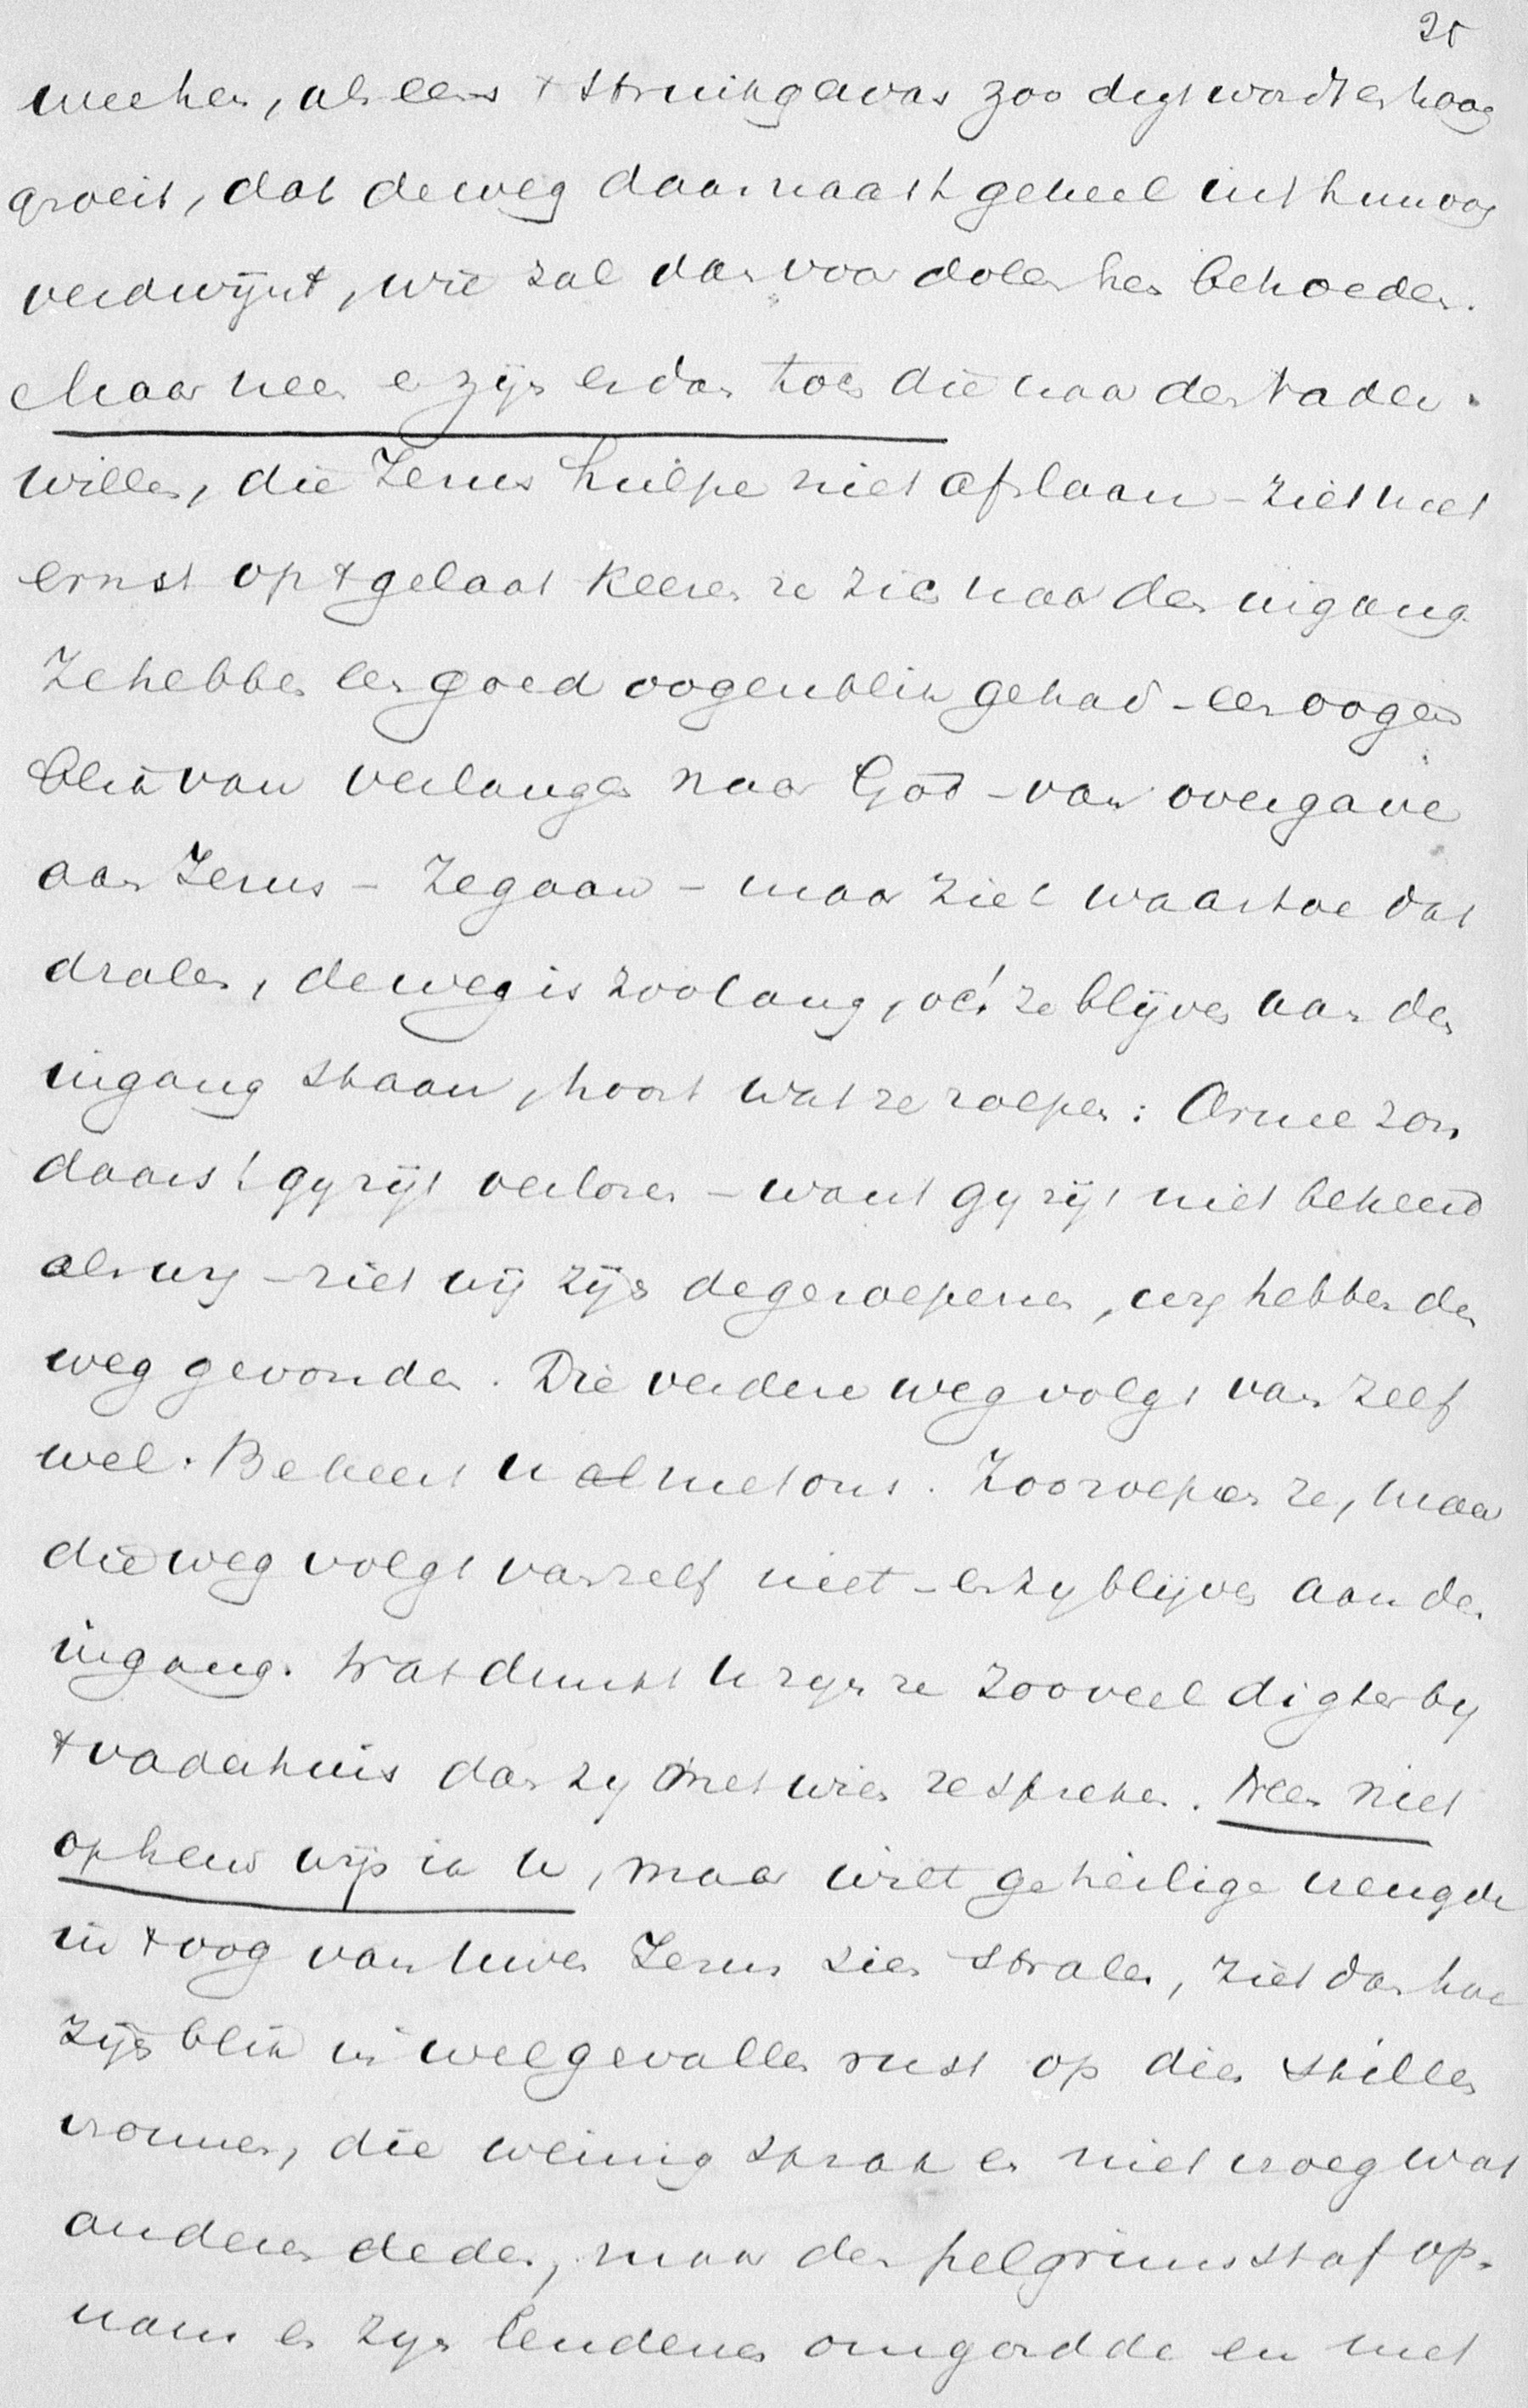 25
weeken, als eens 't struikgewas zoo digt wordt en hoog
groeit, dat de weg daarnaast geheel uit hun oog
verdwijnt, wie zal dan voor dolen hen behoeden.
Maar neen er zijn er dan toch die naar den Vader
willen, die Jezus hulpe niet afslaan – ziet met
ernst op 't gelaat keeren ze zich naar den ingang
Ze hebben een goed oogenblik gehad – een oogen
blik van verlangen naar God – van overgave
aan Jezus – Ze gaan – maar ziet waartoe dat
dralen, de weg is zoo lang, och! ze blijven aan den
ingang staan, hoort wat ze roepen: Arme zon
daars! gy zijt verloren – want gy zijt niet bekeerd
als wy – ziet wij zijn de geroepenen, wy hebben den
weg gevonden. Die verdere weg volgt van zelf
wel. Bekeert u al met ons. Zoo roepen ze, maar
die weg volgt van zelf niet – en zy blijven aan den
ingang. Wat dunkt u zyn ze zooveel digter by
't vaderhuis dan zy met wien ze spreken. Neen niet
op hen wijs ik u, maar wilt ge heilige vreugde
in 't oog van uwen Jezus zien stralen, ziet dan hoe
zijn blik in welgevallen rust op dien stillen
vromen, die weinig sprak en niet vroeg wat
anderen deden, maar den pelgrimsstaf op-
nam en zyn lendenen omgordde en met